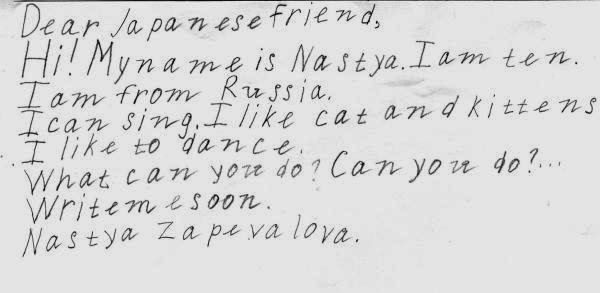 Dear Japanese friend,
Hi! My name is Nastya. I am ten.
I am from Russia.
I can sing. I like cat and kittens
I like to dance.
What can you do? Can you do?...
Write me soon.
Nastya Zapevalova.